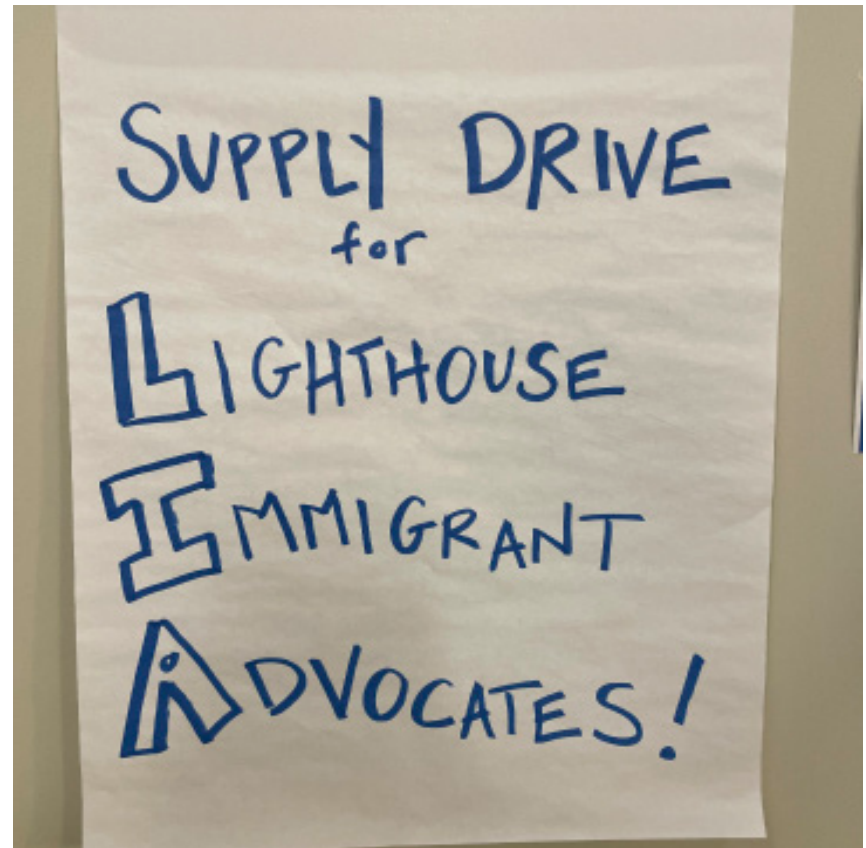 SUPPLY DRIVE
for
LIGHTHOUSE
IMMIGRANT
ADVOCATES!